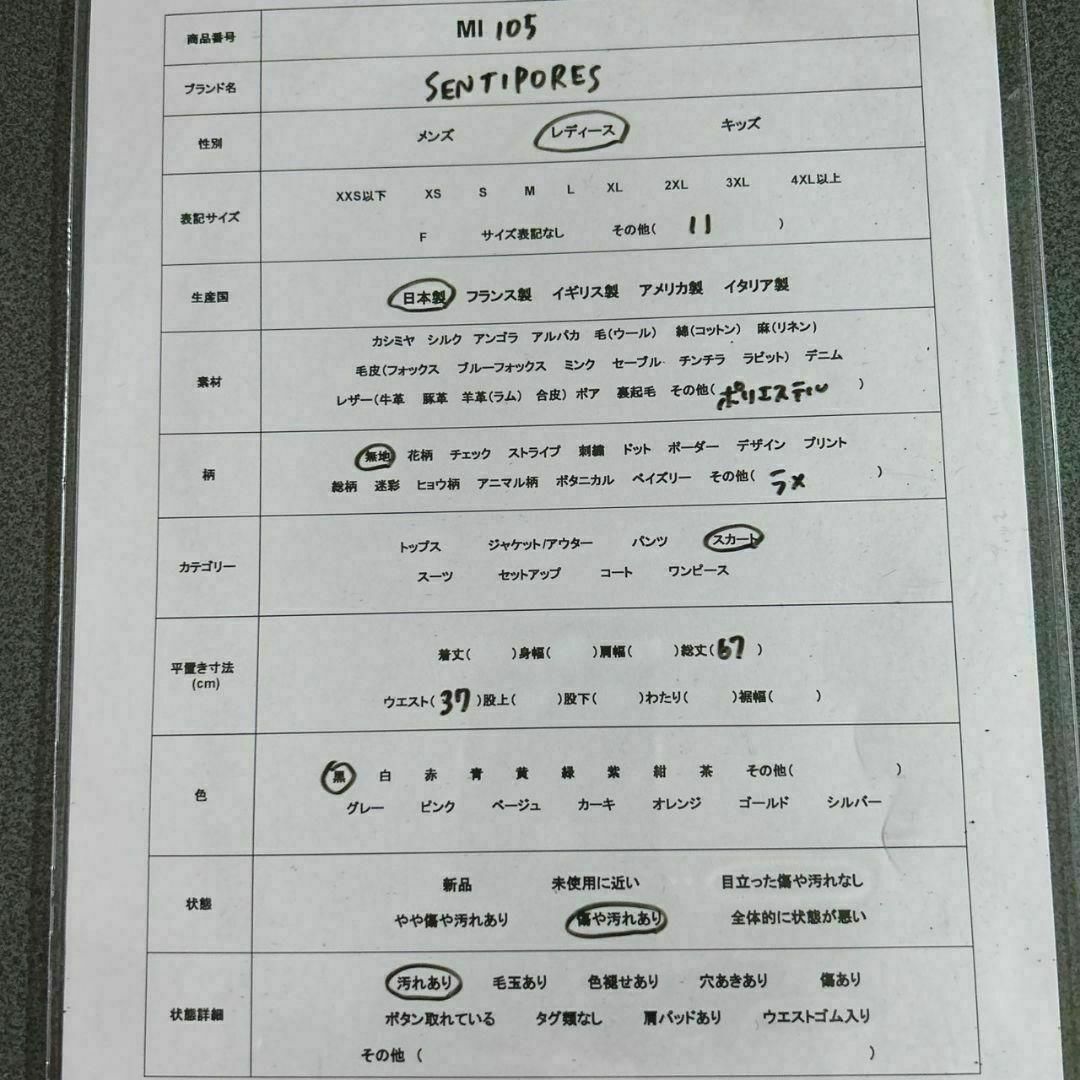 商品番号 MI 105
ブランド名 SENTIPORES
性別 メンズ レディース キッズ
表記サイズ
XXS以下 XS S M L XL 2XL 3XL 4XL以上
F サイズ表記なし その他( 11 )
生産国 日本製 フランス製 イギリス製 アメリカ製 イタリア製
素材
カシミヤ シルク アンゴラ アルパカ 毛(ウール) 綿(コットン) 麻(リネン)
毛皮(フォックス ブルーフォックス ミンク セーブル チンチラ ラビット) デニム
レザー(牛革 豚革 羊革(ラム) 合皮) ボア 裏起毛 その他( ポリエステル )
柄
無地 花柄 チェック ストライプ 刺繍 ドット ボーダー デザイン プリント
総柄 迷彩 ヒョウ柄 アニマル柄 ボタニカル ペイズリー その他( ラメ )
カテゴリー
トップス ジャケット/アウター パンツ スカート
スーツ セットアップ コート ワンピース
平置き寸法
(cm)
着丈( )身幅( )肩幅( )総丈( 67 )
ウエスト( 37 )股上( )股下( )わたり( )裾幅( )
色
黒 白 赤 青 黄 緑 紫 紺 茶 その他( )
グレー ピンク ベージュ カーキ オレンジ ゴールド シルバー
状態
新品 未使用に近い 目立った傷や汚れなし
やや傷や汚れあり 傷や汚れあり 全体的に状態が悪い
状態詳細
汚れあり 毛玉あり 色褪せあり 穴あきあり 傷あり
ボタン取れている タグ類なし 肩パッドあり ウエストゴム入り
その他 ( )